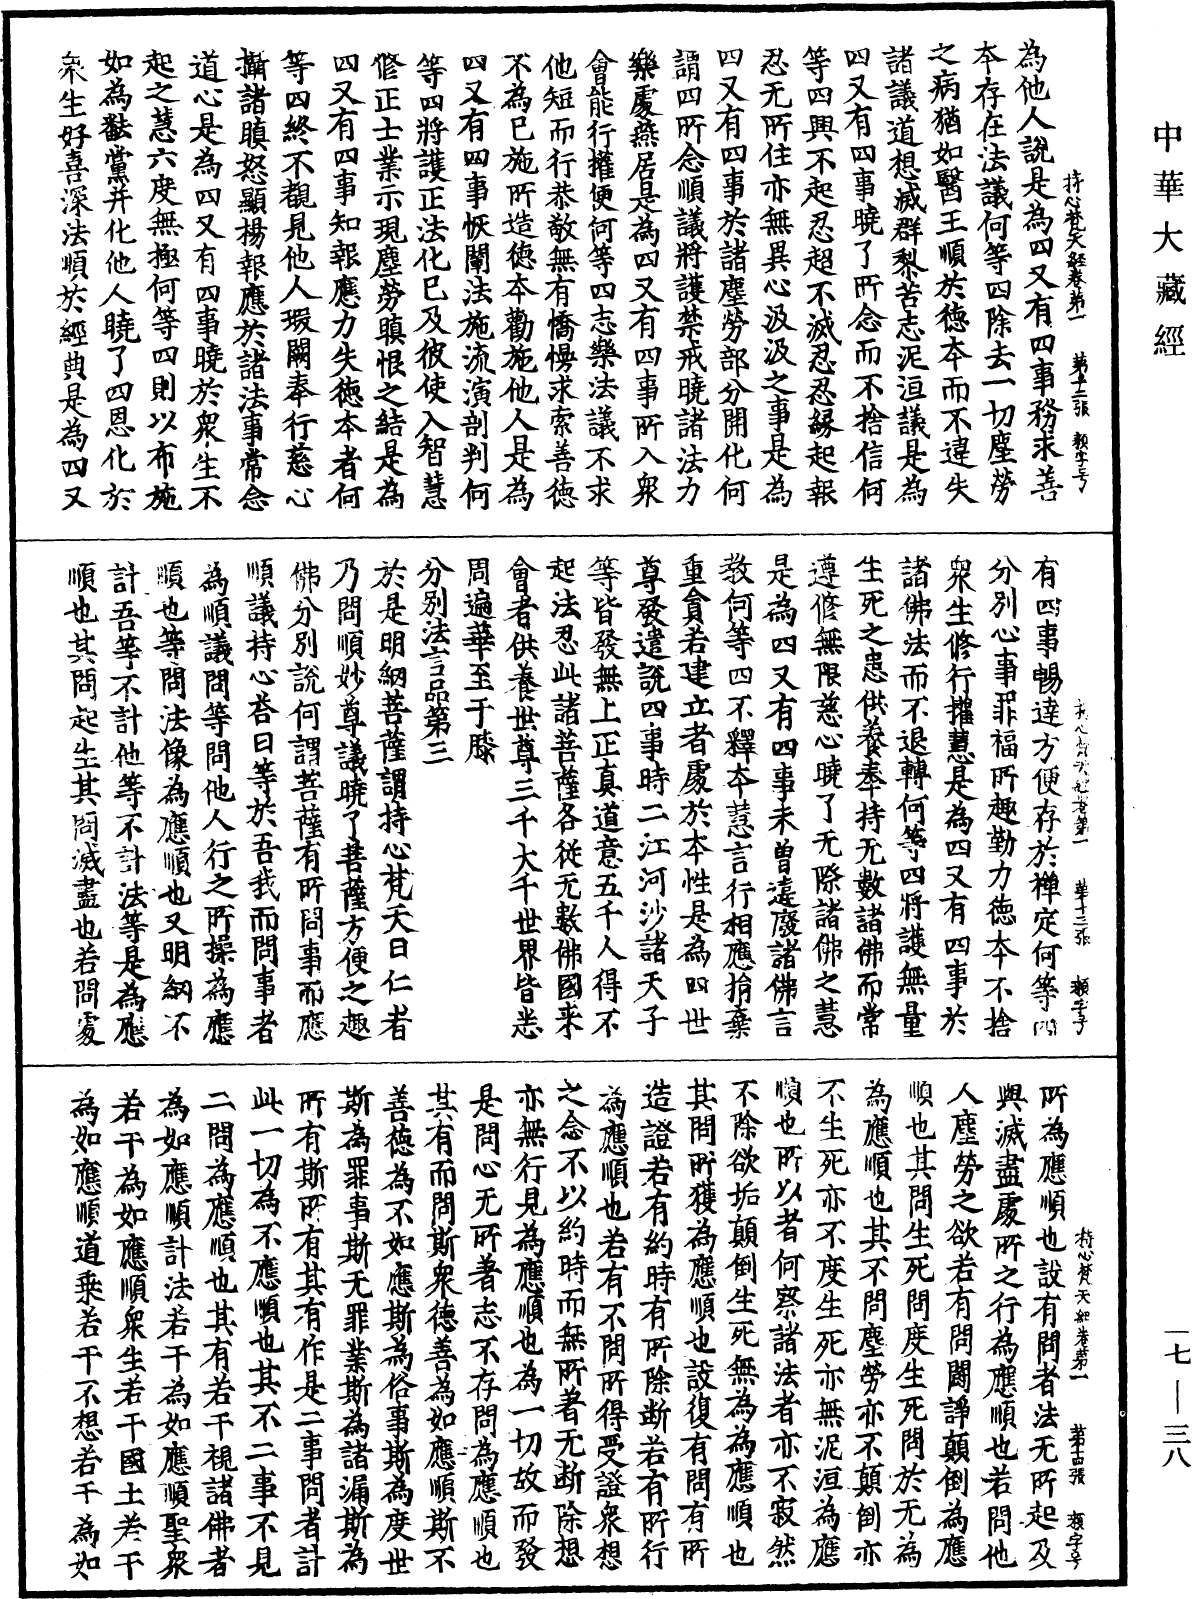 中華大藏經
持心梵天經卷第一 第十二張 賴字号
為他人說是為四又有四事務求善
本存在法議何等四除去一切塵勞
之病猶如醫王順於德本而不違失
諸議道想滅群梨苦志泥洹議是為
四又有四事曉了所念而不捨信何
等四興不起忍超不滅忍忍緣起報
忍无所住亦無異心汲汲之事是為
四又有四事於諸塵勞部分開化何
謂四所念順議將護禁戒曉諸法力
樂處燕居是為四又有四事所入眾
會能行擁便何等四志樂法議不求
他短而行恭敬無有憍慢求索善德
不為已施所造德本勸施他人是為
四又有四事恢闡法施流演剖判何
等四將護正法化已及彼使入智慧
修正士業示現塵勞瞋恨之結是為
四又有四事知報應力失德本者何
等四終不觀見他人瑕闕奉行慈心
攝諸瞋怒顯楊報應於諸法事常念
道心是為四又有四事曉於眾生不
起之慧六度無極何等四則以布施
如為猷黨并化他人曉了四恩化於
眾生好喜深法順於經典是為四又
持心梵天經卷第一 第十三張 賴字号
有四事暢達方便存於禪定何等四
分別心事罪福所趣勤力德本不捨
眾生修行權慧是為四又有四事於
諸佛法而不退轉何等四將護無量
生死之患供養奉持无數諸佛而常
遵修無限慈心曉了无際諸佛之慧
是為四又有四事未曾違廢諸佛言
教何等四不釋本慧言行相應捨棄
重貪若建立者處於本性是為四世
尊發遣說四事時二江河沙諸天子
等皆發無上正真道意五千人得不
起法忍此諸菩薩各從无數佛國來
會者供養世尊三千大千世界皆悉
周遍華至于膝
分別法言品第三
於是明網菩薩謂持心梵天曰仁者
乃問順妙尊議曉了菩薩方便之趣
佛分別說何謂菩薩有所問事而應
順議持心荅曰等於吾我而問事者
為順議問等問他人行之所操為應
順也等問法像為應順也又明網不
計吾等不計他等不計法等是為應
順也其問起生其問滅盡也若問處
持心梵天經卷第一 第十四張 賴字号
所為應順也設有問者法无所起及
與滅盡處所之行為應順也若問他
人塵勞之欲若有問闘諍顛倒為應
順也其問生死問度生死問於无為
為應順也其不問塵勞亦不顛倒亦
不生死亦不度生死亦無泥洹為應
順也所以者何察諸法者亦不寂然
不除欲垢顛倒生死無為為應順也
其問所獲為應順也設復有問有所
造證若有約時有所除斷若有所行
為應順也若有不問所得受證眾想
之念不以約時而無所著无斷除想
亦無行見為應順也為一切故而發
是問心无所著志不存問為應順也
其有而問斯眾德善為如應順斯不
善德為不如應斯為俗事斯為度世
斯為罪事斯无罪業斯為諸漏斯為
所有斯所有其有作是二事問者計
此一切為不應順也其不二事不見
二問為應順也其有若干視諸佛者
為如應順計法若干為如應順聖眾
若干為如應順眾生若干國土若干
為如應順道乘若干不想若干為如
一七—三八